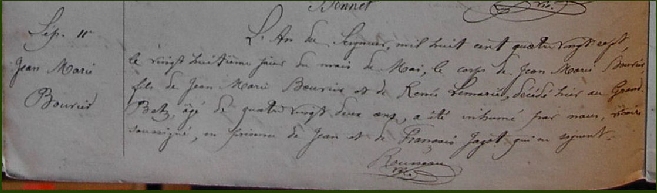 Monnet
vic.
Sép. 11e
Jean Marie
Bouvrée
L'An du Seigneur, mil huit cent quatre vingt sept,
le vingt huitième jour du mois de Mai, le corps de Jean Marie Bouvrée
fils de Jean Marie Bouvrée et de Renée Lemarié, décédé hier au Grand
Betz, âgé de quatre vingt deux ans, a été inhumé par nous, vicaire
soussigné, en présence de Jean et de François Jaget, qui ne signent.
Rousseau
vic.